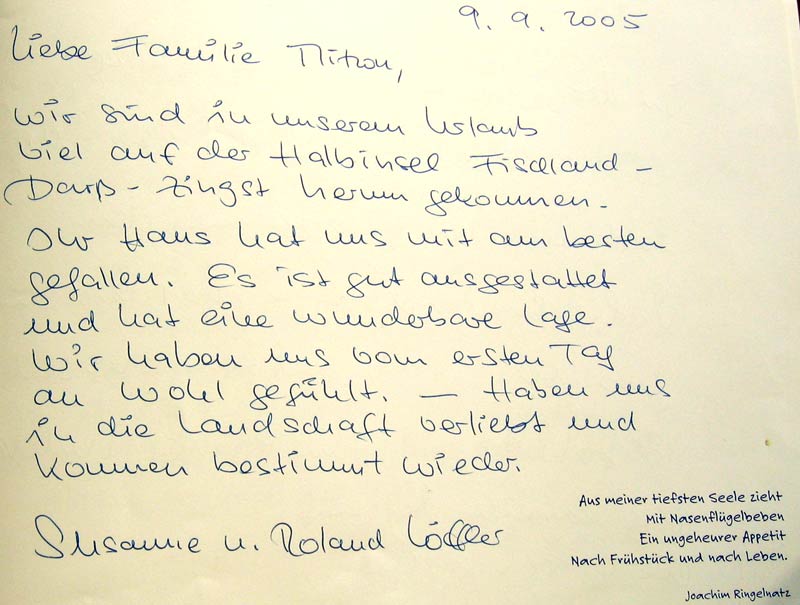 9. 9. 2005
Liebe Familie
wir sind in unserem Urlaub
viel auf der Halbinsel Fischland -
Darß - Zingst herum gekommen.
Ihr Haus hat uns mit am besten
gefallen. Es ist gut ausgestattet
und hat eine wunderbare Lage.
Wir haben uns vom ersten Tag
an wohl gefühlt. — Haben uns
in die Landschaft verliebt und
kommen bestimmt wieder.
Susanne u. Roland Löffler
Aus meiner tiefsten Seele zieht
Mit Nasenflügelbeben
Ein ungeheurer Appetit
Nach Frühstück und nach Leben.
Joachim Ringelnatz